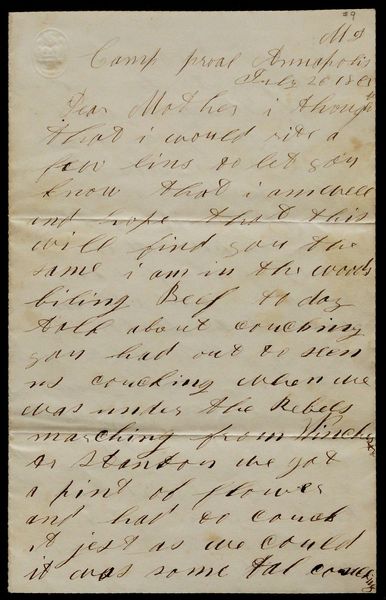 #9
Md
Camp proal Annapolis
July 20 186
Dear Mother i thought
that i would rite a
few lins to let you
know that i am well
and hope that this
will find you the
same i am in the words
biling Beef to day
talk about couching
you had out to seen
us couching when we
was under the Rebels
marching from Winchster
to Stanton we got
a pint of flower
and had to couch
it jest as we could
it was some tal couching